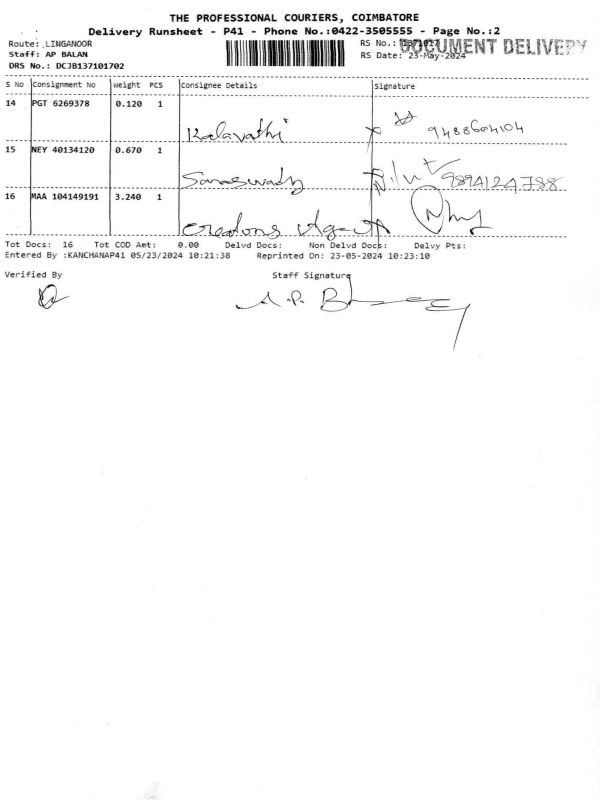 THE PROFESSIONAL COURIERS, COIMBATORE
Delivery Runsheet - P41 - Phone No.:0422-3505555 - Page No.:2
Route: LINGANOOR
RS No.: 1371017
DOCUMENT DELIVERY
Staff: AP BALAN
RS Date: 23-May-2024
DRS No.: DCJB137101702
S No Consignment No Weight PCS Consignee Details Signature
14 PGT 6269378 0.120 1
Kalavathi 9488604104
15 NEY 40134120 0.670 1
Saraswady 9894124788
16 MAA 104149191 3.240 1
Creations
Tot Docs: 16 Tot COD Amt: 0.00 Delvd Docs: Non Delvd Docs: Delvy Pts:
Entered By :KANCHANAP41 05/23/2024 10:21:38 Reprinted On: 23-05-2024 10:23:10
Verified By Staff Signature
A.P.